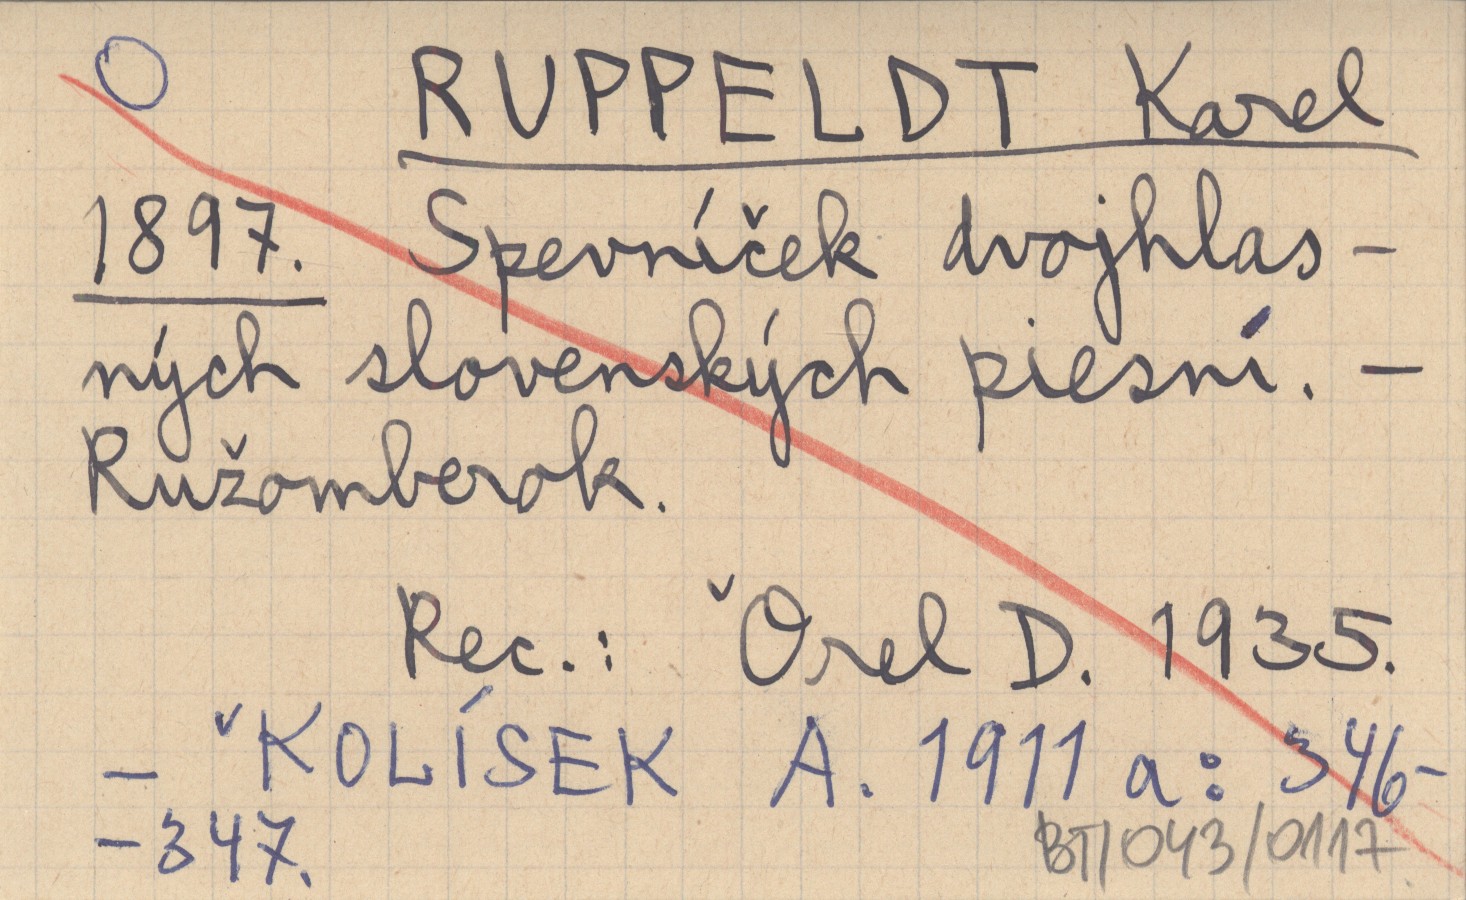 RUPPELDT Karel
1897. Spevníček dvojhlas-
ných slovenských piesní. -
Ružomberok.
Rec.: ˇOrel D. 1935.
- ˇKOLÍSEK A. 1911 a: 346-
-347.
BT/043/0117